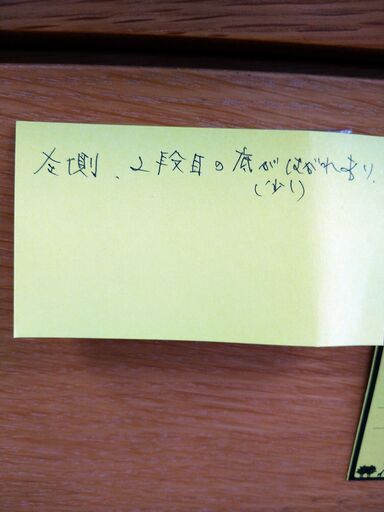 左側、2段目の底がはがれあり.
(少し)